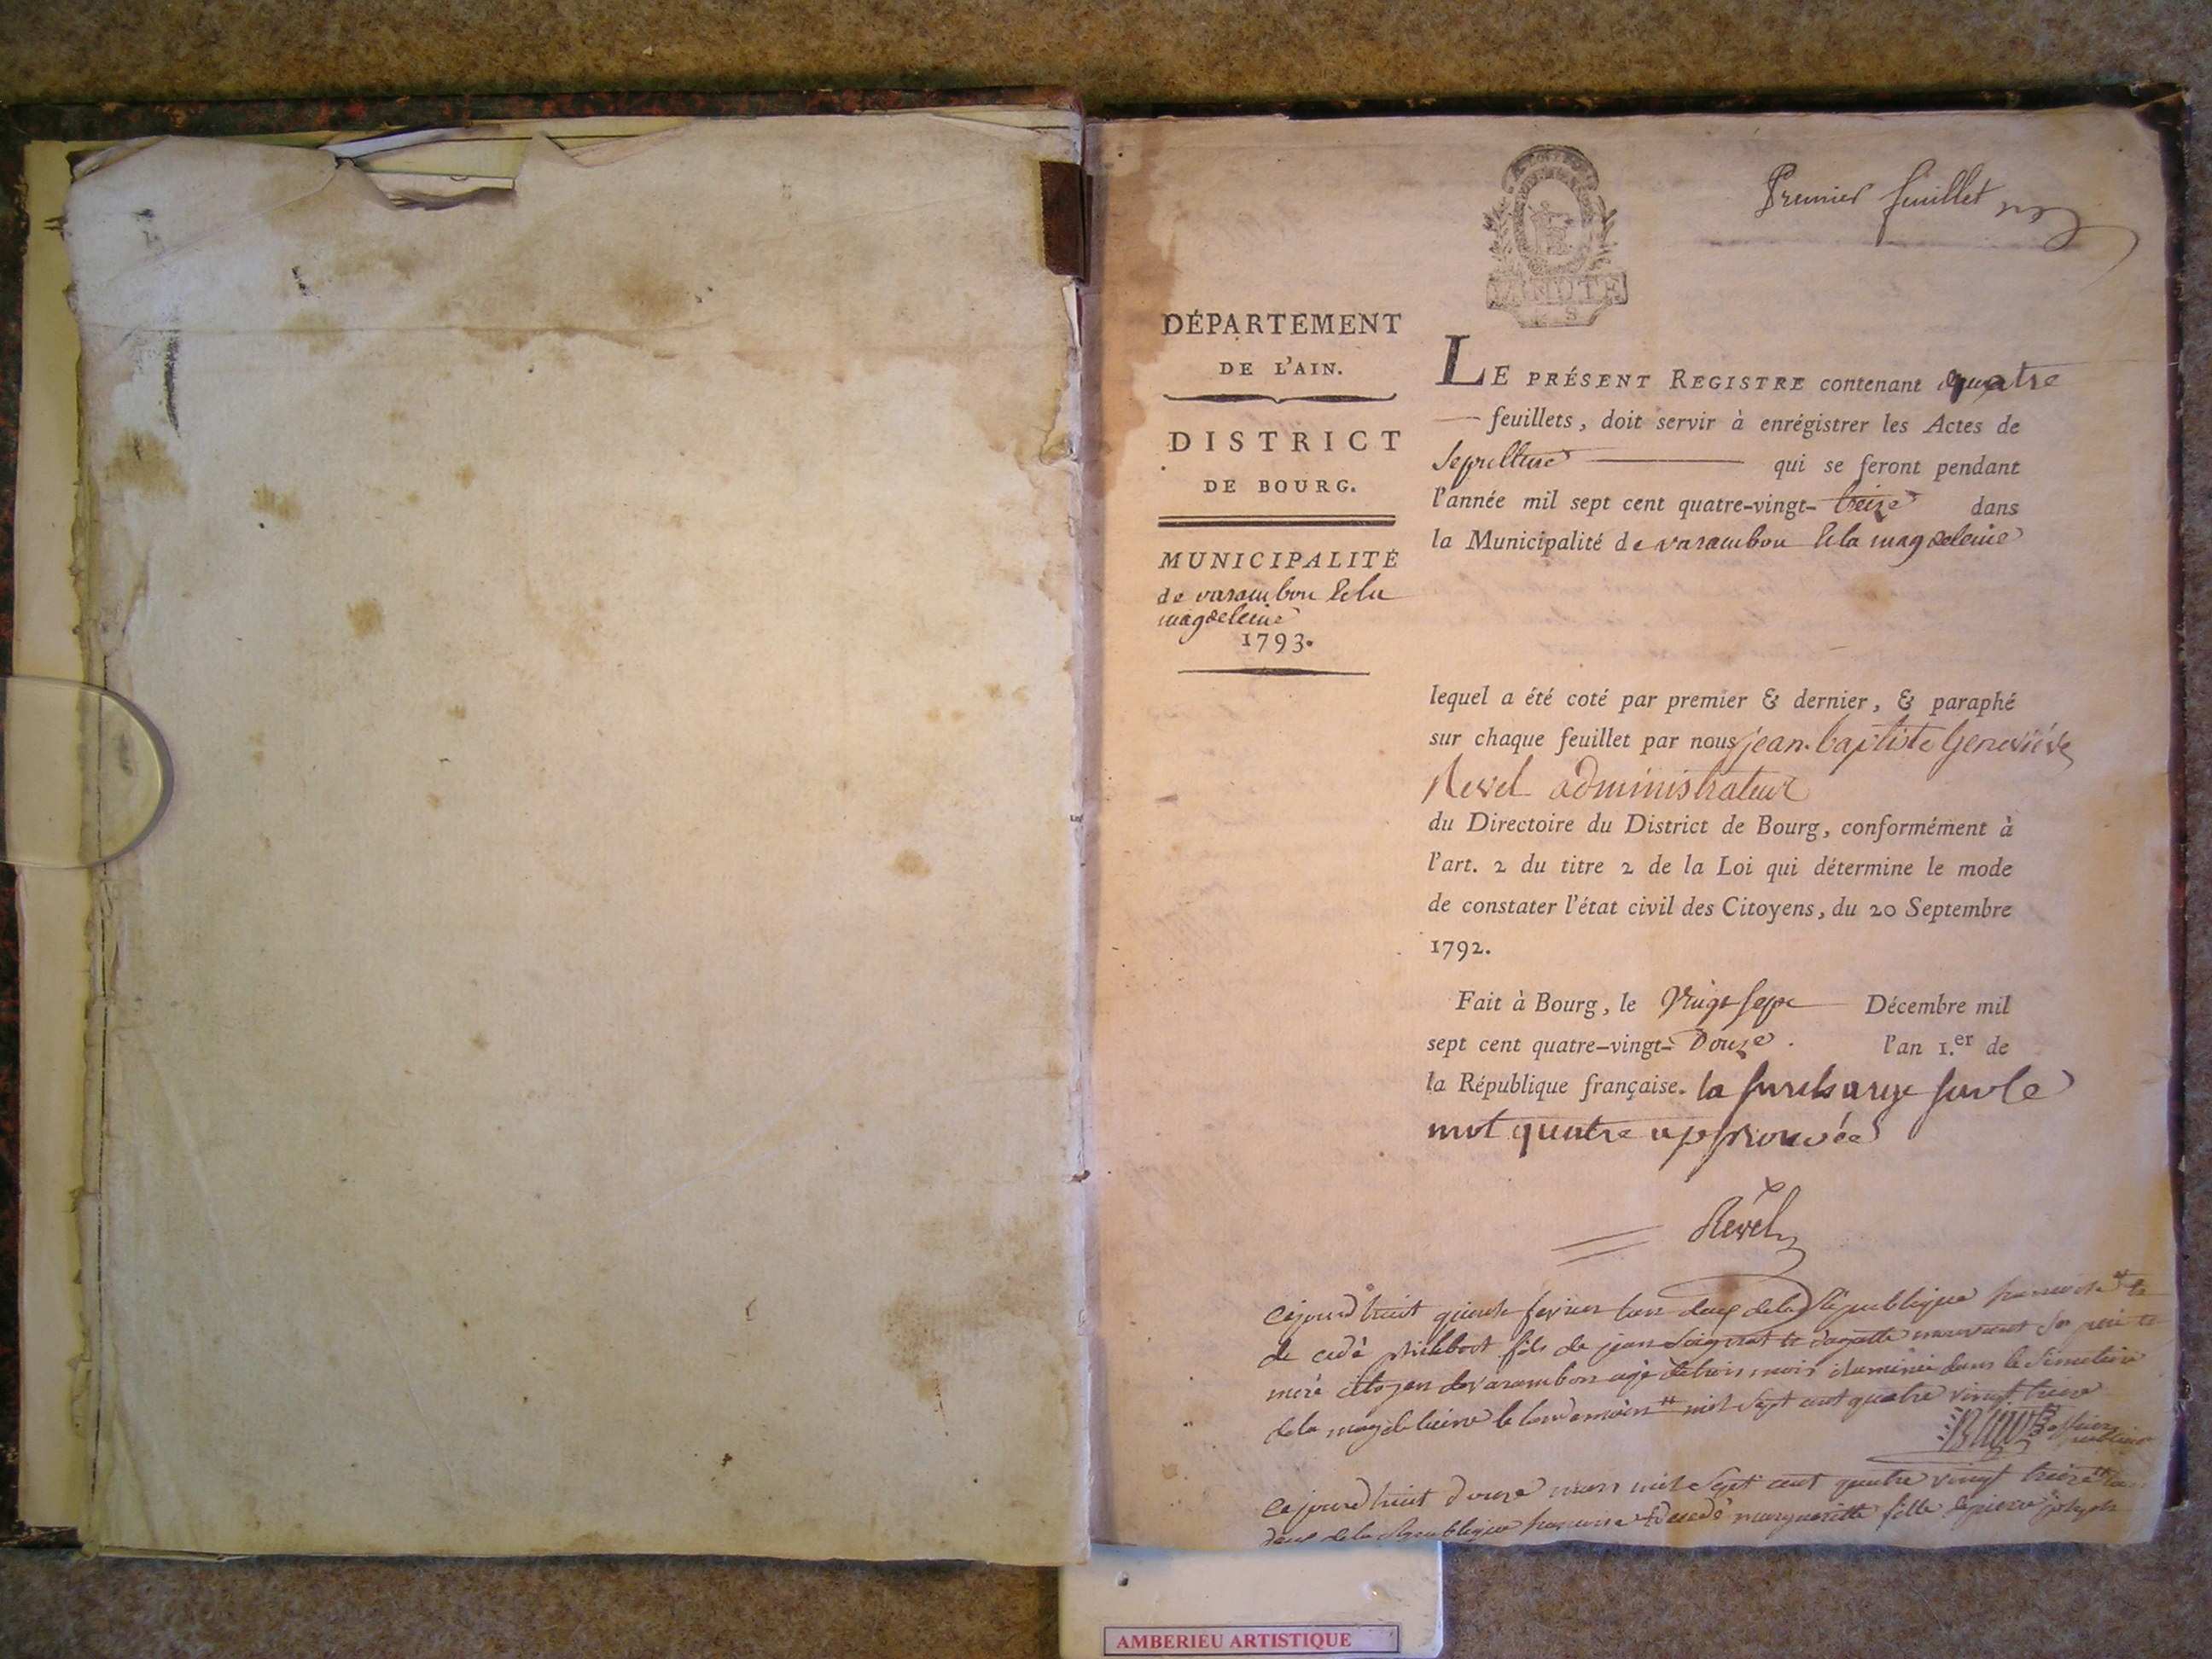 Premier feuillet
DÉPARTEMENT
DE L'AIN.
DISTRICT
DE BOURG.
MUNICIPALITÉ
de varambon & la
magdeleine
1793.
LE PRÉSENT REGISTRE contenant quatre
feuillets, doit servir à enrégistrer les Actes de
Sepulture qui se feront pendant
l'année mil sept cent quatre-vingt- treize dans
la Municipalité de varambon & la magdeleine
lequel a été coté par premier & dernier, & paraphé
sur chaque feuillet par nous jean-baptiste Geneviéve
Revel administrateur
du Directoire du District de Bourg, conformément à
l'art. 2 du titre 2 de la Loi qui détermine le mode
de constater l'état civil des Citoyens, du 20 Septembre
1792.
Fait à Bourg, le Vingt Sept Décembre mil
sept cent quatre-vingt- Douze. l'an 1.er de
la République française. la surcharge sur le
mot quatre approuvée
Revel
cejourd'huit quinze fevrier lan deux de la Republique francoise et
de cedé philibert fils de jean et dagathe son pere et
mere citojen de varambon agé de trois mois dans le Simetiere
de la magdeleine le lendemain mil Sept cent quatre vingt treize
officier
public
Cejourd'huit douze mars mil Sept cent quatre vingt treize lan
deux de la Republique francoise decedé margueritte fille de pierre joseph
AMBERIEU ARTISTIQUE